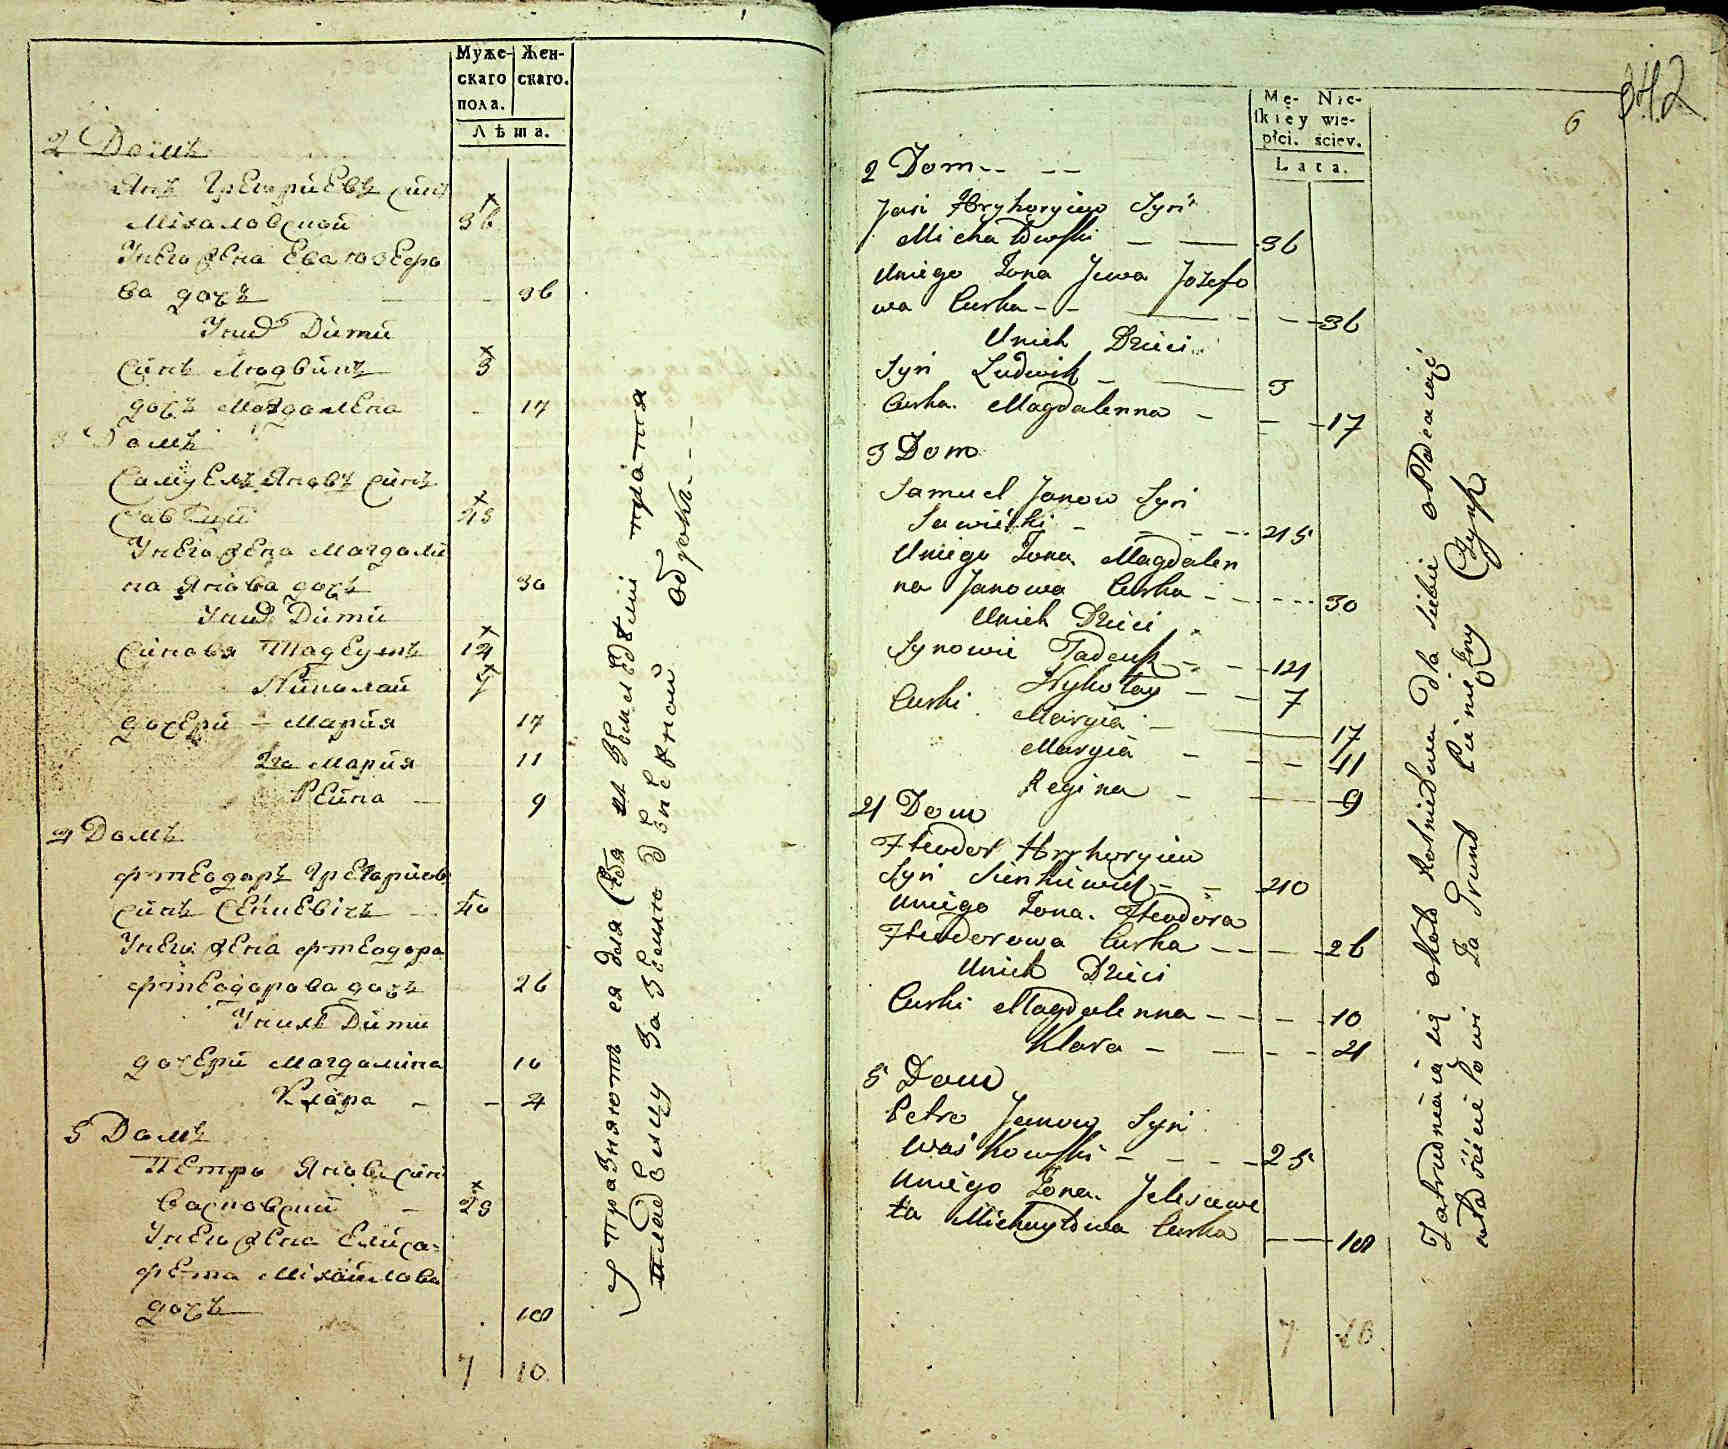 Муже- Жен-
скаго скаго.
пола.
Лѣта.
2 Домъ
Янъ Грегориевъ синъ
Михаловский 36
Унего жена Ева Юзефо
ва дочъ - 36
Унихъ Дити
Синъ Людвикъ 3
дочъ Магдалена - 17
3 Домъ
Самуелъ Яновъ синъ
Савицкий 45
Унего жена Магдали
на Янова дочъ 30
Унихъ Дити
Синовя Тадеушъ 14
Николай 7
дочери - Мария 17
2га Мария 11
Рейна - 9
4 Домъ
Фтеодоръ Грегориевъ
синъ Сенкевичъ - 40
Унего жена Фтеодора
Фтеодорова дочъ 26
Унихъ Дити
дочери Магдалина 10
Клара - - 4
5 Домъ
Петро Яновъ синъ
Васковский - 25
Унего жена Елиса-
фета Михайлова
дочъ 18
7 10
Упразняютъ ся для себя земледѣлиі платя
владѣлцу за землю денежной оброкъ - -
342
6
Mę- Nie-
ſkiey wie-
płci. ściey.
Lata.
2 Dom - - - -
Jan Hryhoryiew Syn
Michałowski - - 36
Uniego Żona Jewa Jozefo
wa Curka - - - - 36
Unich Dzieci
Syn Ludwik - - 3
Curka Magdalenna - - - 17
3 Dom
Samuel Janow Syn
Sawicki - - - 45
Uniego Żona Magdalen
na Janowa Curka - - - 30
Unich Dzieci
Synowie Tadeusz - - 14
Mykołay - - 7
Curki Maryia - - 17
Maryia - - - 11
Regina - - 9
4 Dom
Fteodor Hryhoryiew
Syn Sienkiewicz - - 40
Uniego Żona Fteodora
Fteodorowa Curka - - - 26
Unich Dzieci
Curki Magdalenna - - - 10
Klara - - - - 4
5 Dom
Petro Janow Syn
Waśkowski - - - - 25
Uniego Żona Jelisawe
ta Michayłowa Curka - - 18
7 10
Zatrudniaią się około Rolnictwa dla siebie opłacaiąc
właścicielowi Za Grunt Pieniężny Czynsz